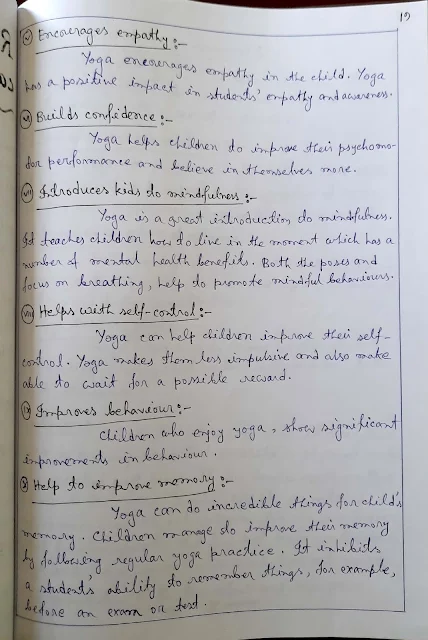 19
(v) Encourages empathy :-
Yoga encourages empathy in the child. Yoga
has a positive impact in students' empathy and awareness.
(vi) Builds confidence :-
Yoga helps children to improve their psychomo-
tor performance and believe in themselves more.
(vii) Introduces kids to mindfulness :-
Yoga is a great introduction to mindfulness.
It teaches children how to live in the moment which has a
number of mental health benefits. Both the poses and
focus on breathing, help to promote mindful behaviours.
(viii) Helps with self-control :-
Yoga can help children improve their self-
control. Yoga makes them less impulsive and also make
able to wait for a possible reward.
(ix) Improves behaviour :-
Children who enjoy yoga, show significant
improvements in behaviour.
(x) Help to improve memory :-
Yoga can do incredible things for child's
memory. Children manage to improve their memory
by following regular yoga practice. It inhibits
a student's ability to remember things, for example,
before an exam or test.